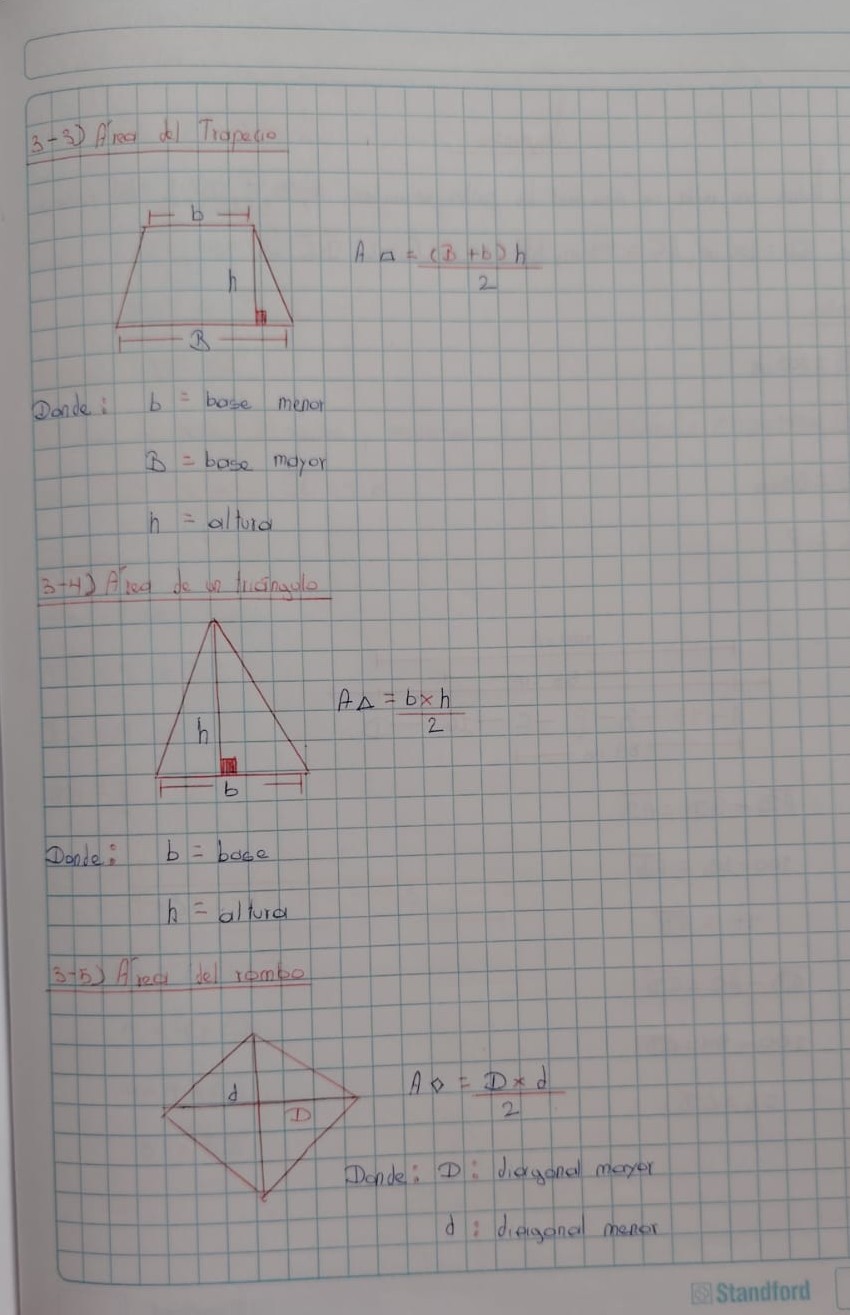 3-3) Área del Trapecio
b
h
B
A⏢ = (B + b) h
2
Donde: b = base menor
B = base mayor
h = altura
3-4) Área de un triángulo
h
b
A△ = b x h
2
Donde: b = base
h = altura
3-5) Área del rombo
d
D
A◇ = D x d
2
Donde: D: diagonal mayor
d: diagonal menor
Standford